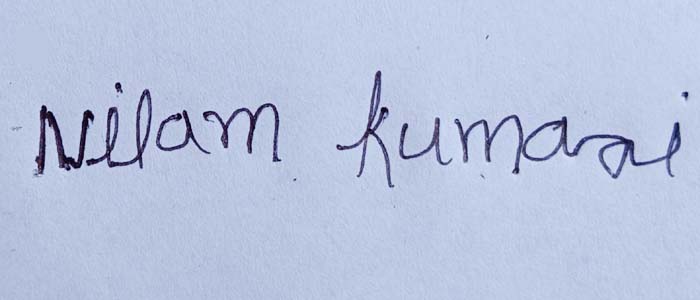 Nilam Kumari